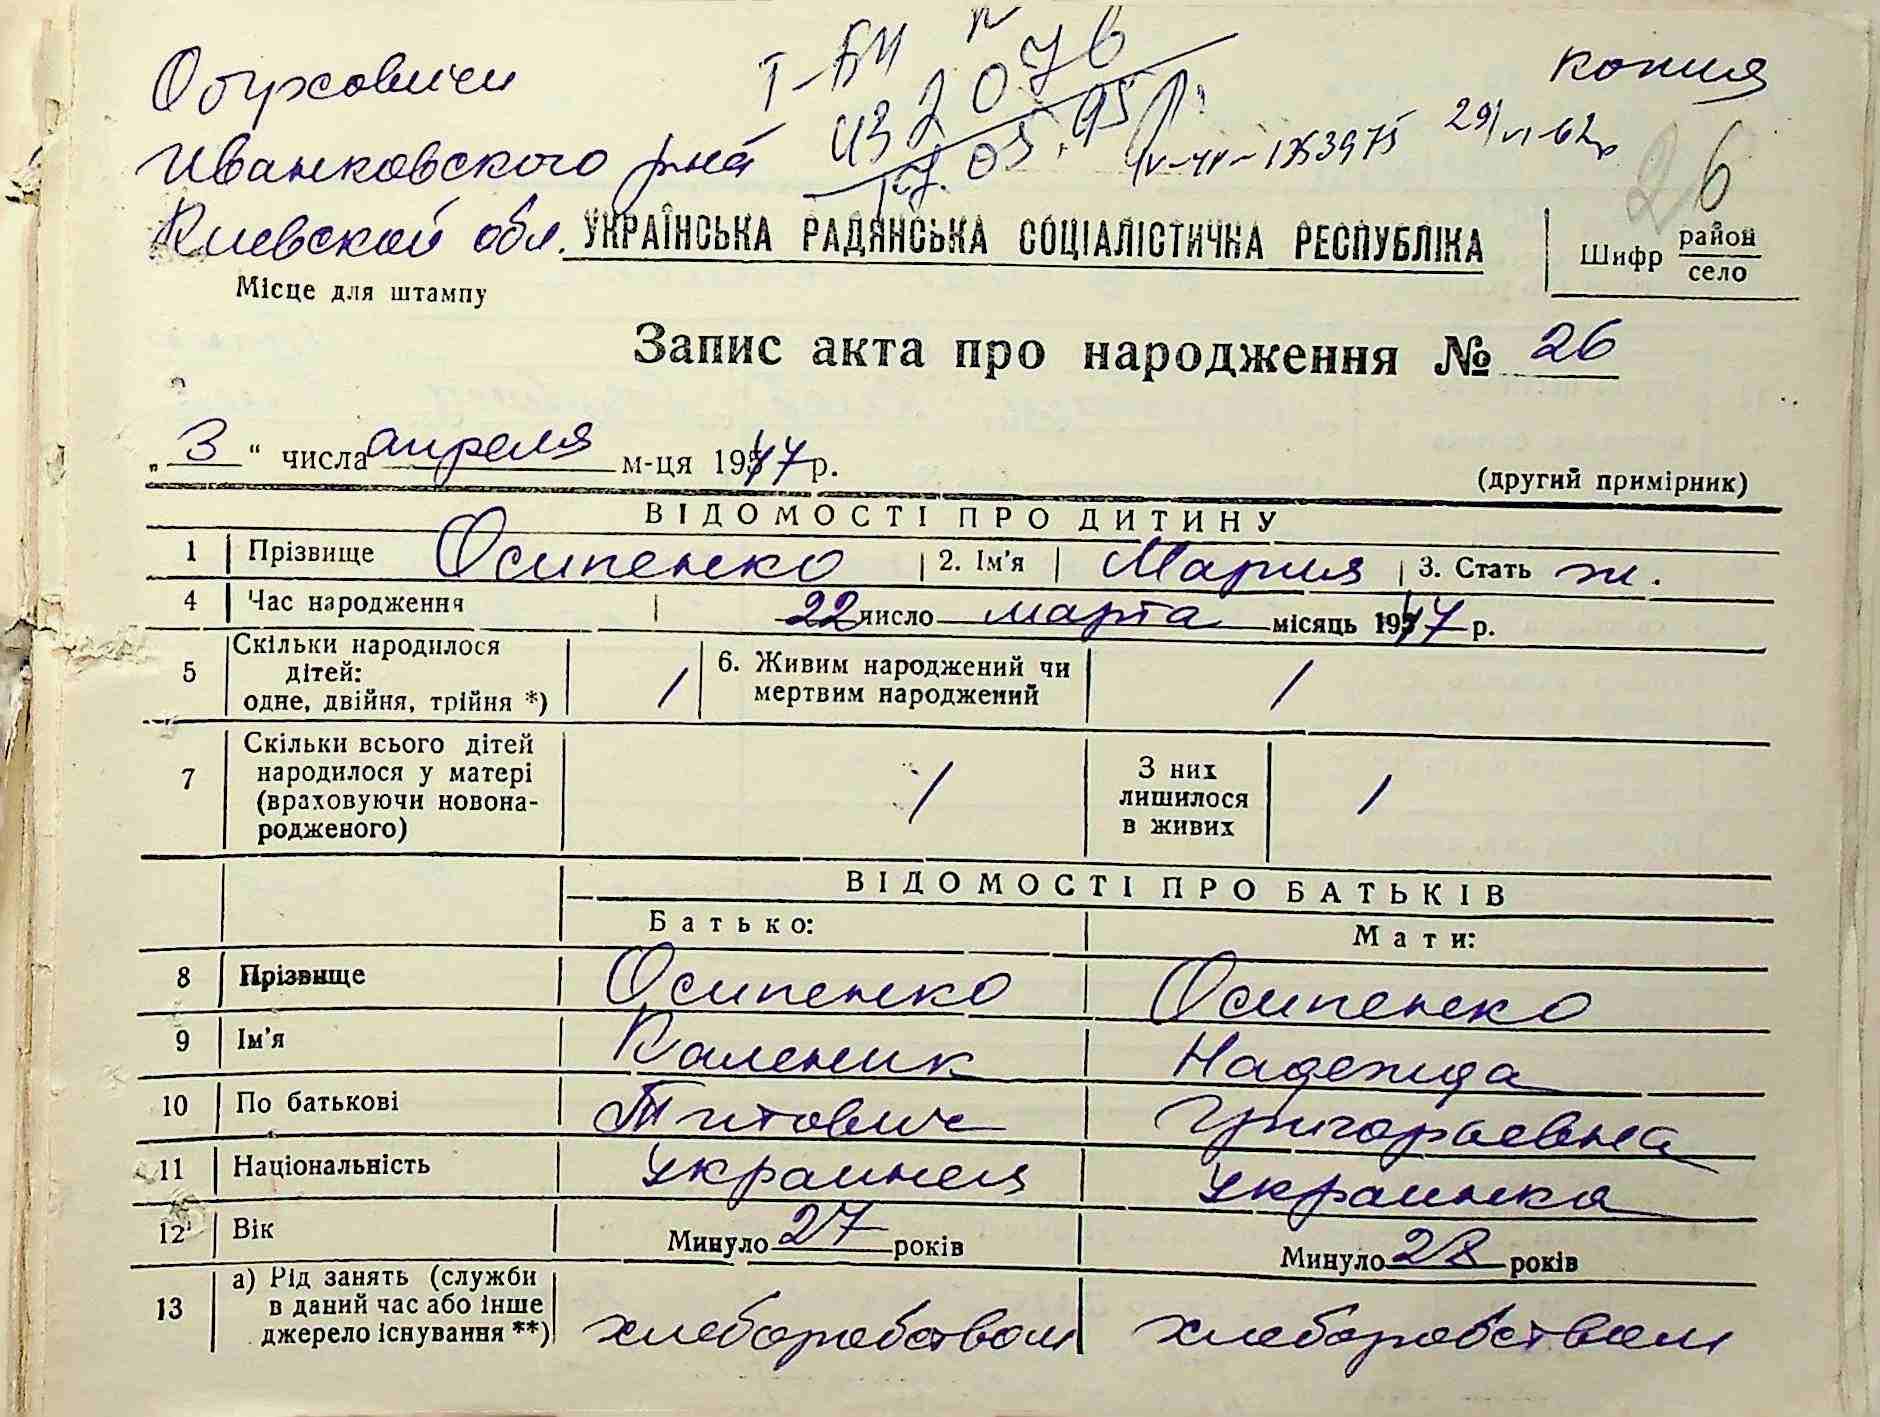 Обуховичи
Иванковского р-на
Киевской обл.
І-БИ
432076
17.05.95
копия
IV-ЧР-1353975 29/VI-62р
26
УКРАЇНСЬКА РАДЯНСЬКА СОЦІАЛІСТИЧНА РЕСПУБЛІКА
Шифр район
село
Місце для штампу
Запис акта про народження № 26
„ 3 “ числа апреля м-ця 1947 р.
(другий примірник)
ВІДОМОСТІ ПРО ДИТИНУ
1 Прізвище Осипенко 2. Ім'я Мария 3. Стать ж.
4 Час народження 22 число марта місяць 1947 р.
5 Скільки народилося дітей: одне, двійня, трійня *) 1 6. Живим народжений чи мертвим народжений 1
7 Скільки всього дітей народилося у матері (враховуючи новонародженого) 1 З них лишилося в живих 1
ВІДОМОСТІ ПРО БАТЬКІВ
Батько: Мати:
8 Прізвище Осипенко Осипенко
9 Ім'я Каленик Надежда
10 По батькові Титович Григорьевна
11 Національність Украинец Украинка
12 Вік Минуло 27 років Минуло 28 років
13 а) Рід занять (служби в даний час або інше джерело існування **) хлеборобством хлеборобством